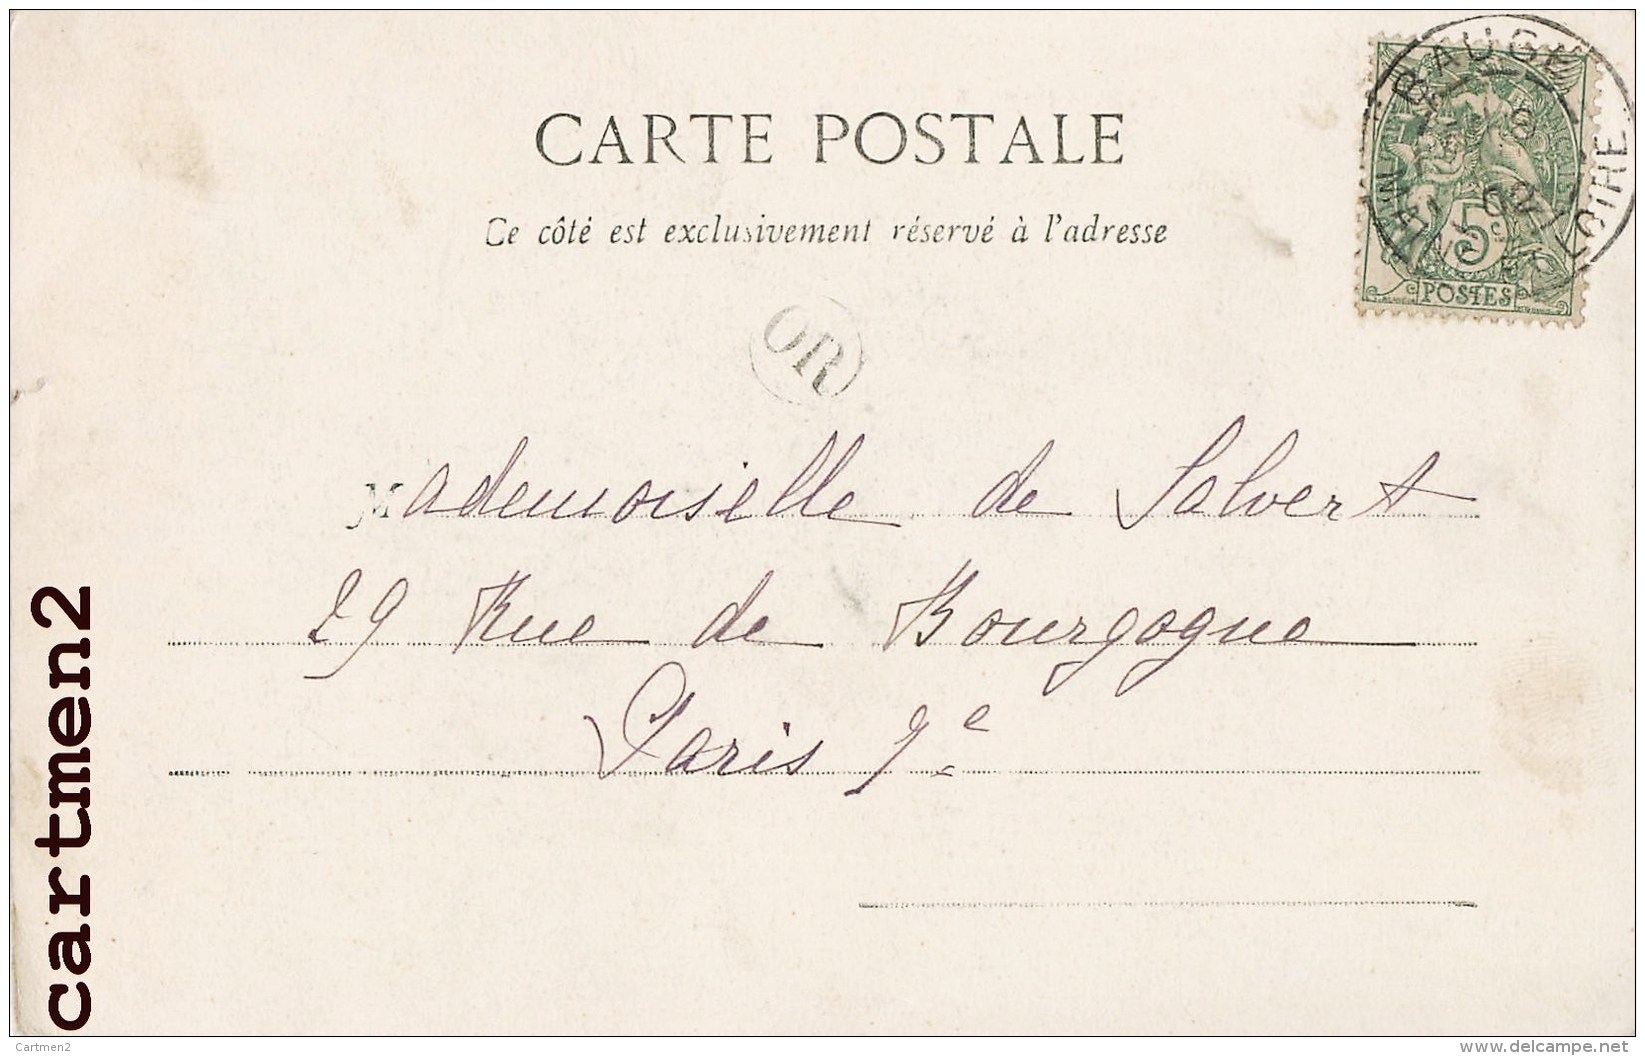 CARTE POSTALE
Ce côté est exclusivement réservé à l'adresse
BAUGÉ
MAINE-ET-LOIRE
5c
POSTES
OR
Mademoiselle de Salvert
29 Rue de Bourgogne
Paris 7e
cartmen2
Cartmen2
www.delcampe.net